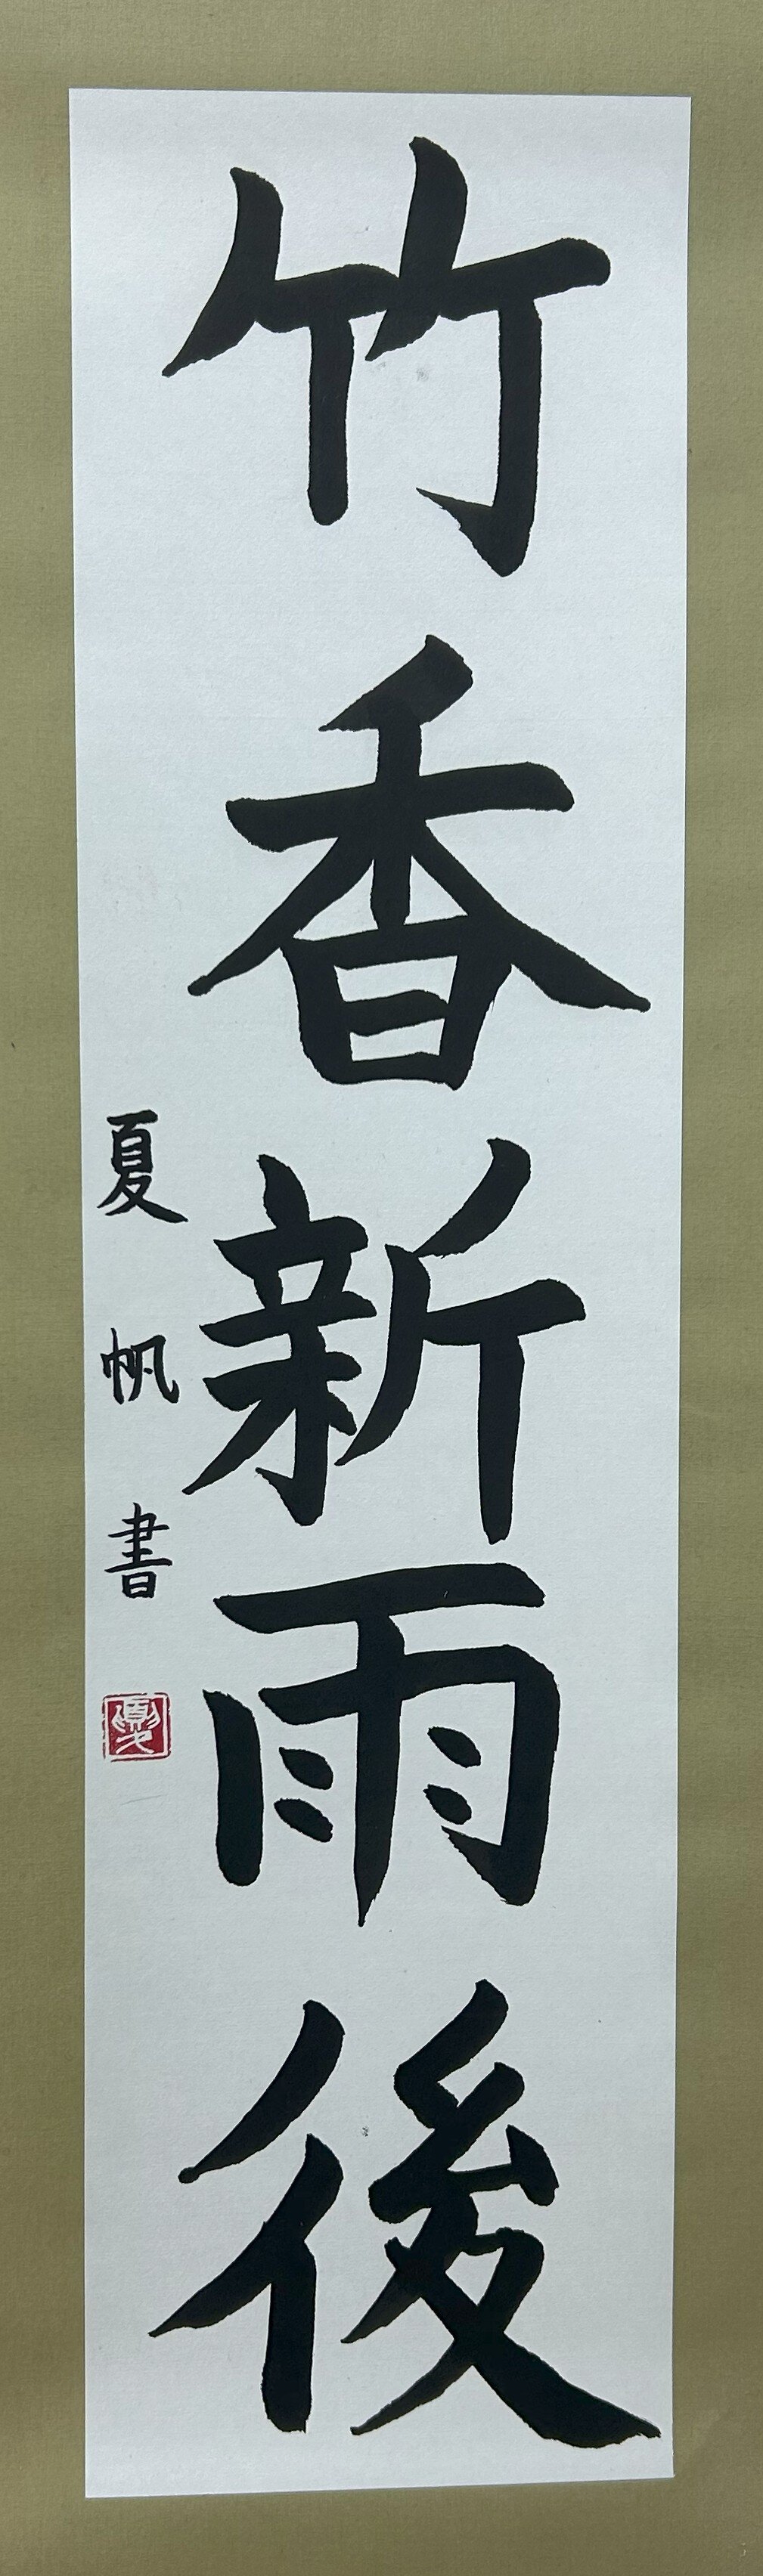 竹香新雨後
夏帆書